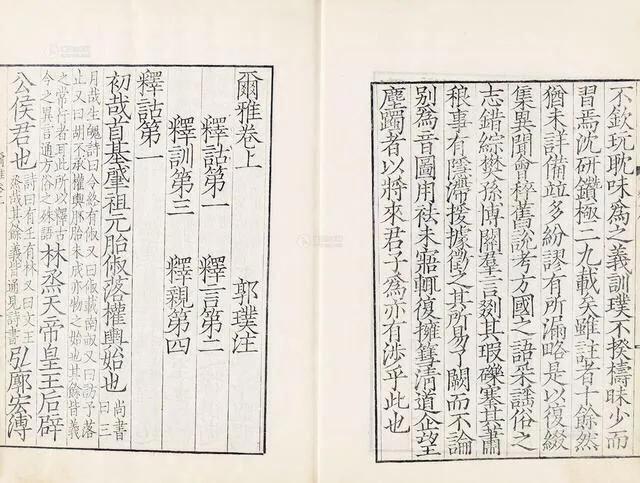 不欽玩耽味為之義訓璞不揆檮昧少而
習焉沈研鑽極二九載矣雖註者十餘然
猶未詳備竝多紛謬有所漏略是以復綴
集異聞會稡舊說考方國之語采謠俗之
志錯綜樊孫博關羣言剟其瑕礫搴其蕭
稂事有隱滯援據徵之其所易了闕而不論
別為音圖用祛未寤輒復擁篲清道企望
塵躅者以將來君子為亦有涉乎此也
爾雅卷上 郭璞注
釋詁第一 釋言第二
釋訓第三 釋親第四
釋詁第一
初哉首基肇祖元胎俶落權輿始也 尚書曰三
月哉生魄詩曰令終有俶又曰俶載南畝又曰訪予落
止又曰胡不承權輿胚胎未成亦物之始也其餘皆義
之常行者耳此所以釋古
今之異言通方俗之殊語 林烝天帝皇王后辟
公侯君也 詩曰有壬有林又曰文王
烝哉其餘義皆通見詩書 弘廓宏溥